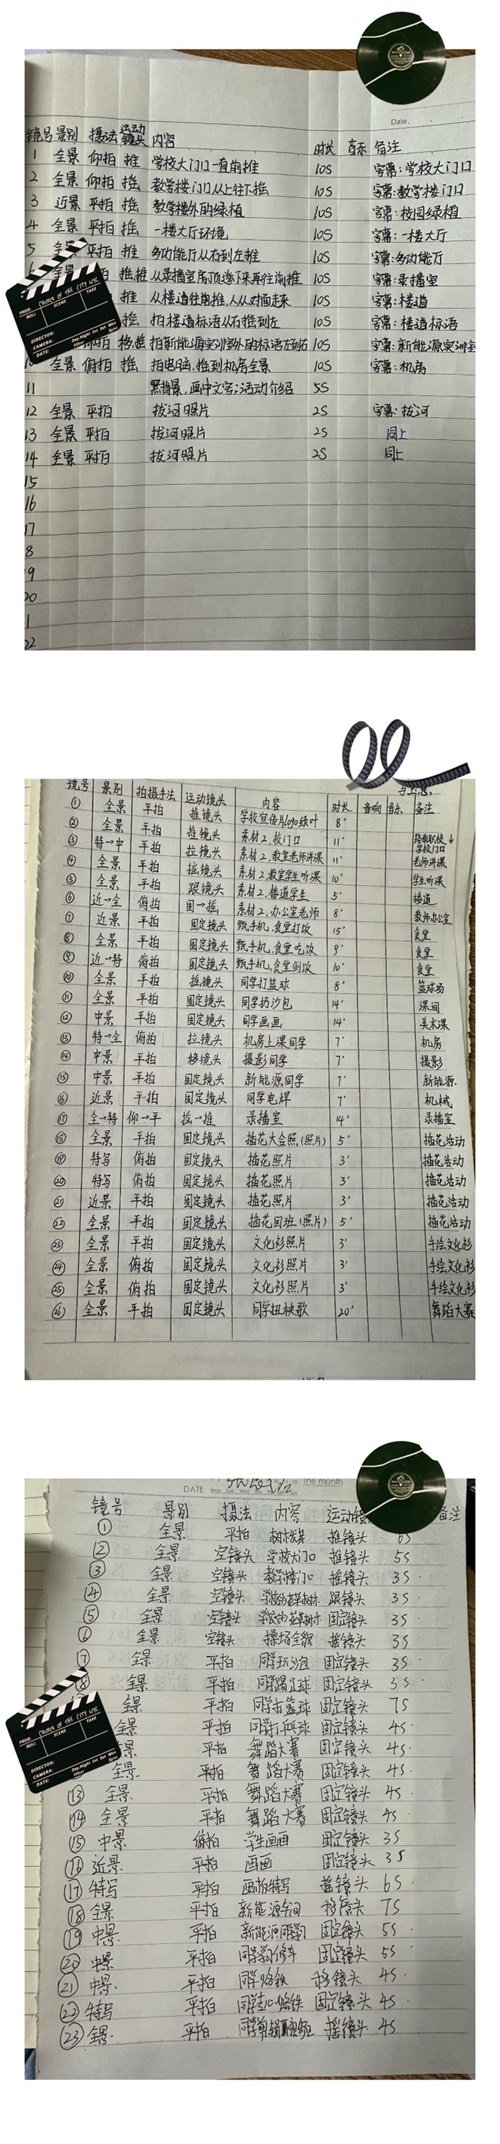 Date.
镜号 景别 摄法 运动镜头 内容 时长 音乐 备注
1 全景 仰拍 推 学校大门口一直前推 10S 字幕:学校大门口
2 全景 仰拍 摇 教学楼门口从上往下摇 10S 字幕:教学楼门口
3 近景 平拍 摇 教学楼外的绿植 10S 字幕:校园绿植
4 全景 平拍 摇 一楼大厅环境 10S 字幕:一楼大厅
5 全景 平拍 推 多功能厅从右到左推 10S 字幕:多功能厅
摇推 从录播室房顶摇下来再往前推 10S 字幕:录播室
推 从楼道往前推,人从对面走来 10S 字幕:楼道
摇 拍楼道标语从右摇到左 10S 字幕:楼道标语
拍新能源实训室外的标语左到右 10S 字幕:新能源实训室
全景 俯拍 摇 拍电脑,推到机房全景 10S 字幕:机房
11 黑背景,画中文字:活动介绍 5S
12 全景 平拍 拔河照片 2S 字幕:拔河
13 全景 平拍 拔河照片 2S 同上
14 全景 平拍 拔河照片 2S 同上
15
16
17
18
19
20
21
22
镜号 景别 拍摄手法 运动镜头 内容 时长 音响 音乐 备注
① 全景 平拍 推镜头 学校宣传片logo绿叶 8'
② 全景 平拍 推镜头 素材2,校门口 11' 学校门口
③ 特→中 平拍 拉镜头 素材2,教室老师讲课 11' 老师讲课
④ 全景 平拍 摇镜头 素材2,教室学生听课 10' 学生听课
⑤ 全景 平拍 跟镜头 素材2,楼道学生 5' 楼道
⑥ 近→全 俯拍 固→摇 素材2,办公室老师 8' 教师办公室
⑦ 近景 平拍 固定镜头 甄手机,食堂打饭 15' 食堂
⑧ 全景 平拍 固定镜头 甄手机,食堂吃饭 9' 食堂
⑨ 近→特 俯拍 固定镜头 甄手机,食堂倒饭 10' 食堂
⑩ 全景 平拍 摇镜头 同学打篮球 8' 篮球场
⑪ 全景 平拍 固定镜头 同学扔沙包 14' 课间
⑫ 中景 平拍 固定镜头 同学画画 14' 美术课
⑬ 特→全 俯拍 拉镜头 机房上课同学 7' 机房
⑭ 中景 平拍 移镜头 摄影同学 7' 摄影
⑮ 中景 平拍 固定镜头 新能源同学 7' 新能源
⑯ 近景 平拍 固定镜头 同学电焊 7' 机械
⑰ 全→特 仰→平 摇→推 录播室 14' 录播室
⑱ 全景 平拍 固定镜头 插花大合照(照片) 5' 插花活动
⑲ 特写 俯拍 固定镜头 插花照片 3' 插花活动
⑳ 特写 俯拍 固定镜头 插花照片 3' 插花活动
㉑ 近景 平拍 固定镜头 插花照片 3' 插花活动
㉒ 全景 平拍 固定镜头 插花回班(照片) 5' 插花活动
㉓ 全景 平拍 固定镜头 文化衫照片 3' 手绘文化衫
㉔ 全景 俯拍 固定镜头 文化衫照片 3' 手绘文化衫
㉕ 全景 俯拍 固定镜头 文化衫照片 3' 手绘文化衫
㉖ 全景 平拍 固定镜头 同学扭秧歌 20' 舞蹈大赛
DATE
镜号 景别 摄法 内容 运动镜 备注
① 全景 平拍 推镜头 6S
② 全景 空镜头 学校大门口 推镜头 5S
③ 全景 空镜头 教学楼门口 摇镜头 3S
④ 全景 空镜头 学校的花草树木 跟镜头 3S
⑤ 全景 空镜头 学校的花草树木 固定镜头 3S
⑥ 全景 空镜头 操场全貌 摇镜头 3S
⑦ 全景 平拍 同学玩沙包 固定镜头 3S
⑧ 全景 平拍 同学踢足球 固定镜头 3S
全景 平拍 同学打篮球 固定镜头 7S
全景 平拍 同学打乒乓球 固定镜头 4S
全景 平拍 舞蹈大赛 固定镜头 4S
全景 平拍 舞蹈大赛 固定镜头 4S
⑬ 全景 平拍 舞蹈大赛 固定镜头 4S
⑭ 全景 平拍 舞蹈大赛 固定镜头 4S
⑮ 中景 俯拍 学生画画 固定镜头 3S
⑯ 近景 平拍 画画 固定镜头 3S
⑰ 特写 平拍 画的特写 摇镜头 6S
⑱ 全景 平拍 新能源车间 移镜头 7S
⑲ 中景 平拍 新能源同学们 固定镜头 5S
⑳ 中景 平拍 同学们修车 固定镜头 5S
㉑ 中景 平拍 同学烙铁 移镜头 4S
㉒ 特写 平拍 固定镜头 4S
㉓ 全景 平拍 同学剪辑视频 摇镜头 4S